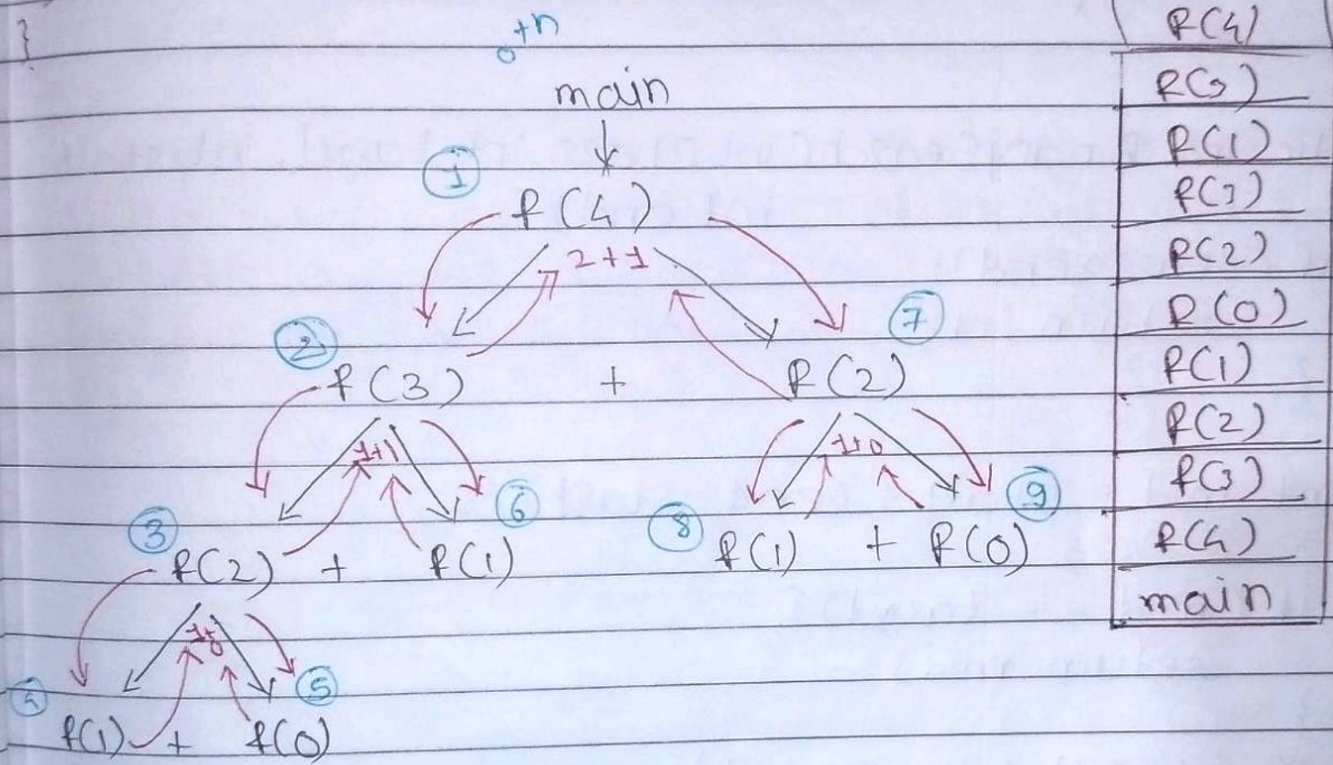 }
main
①
f(4)
2+1
② ⑦
f(3) + f(2)
1+1 1+0
③ ⑥ ⑧ ⑨
f(2) + f(1) f(1) + f(0)
1+0
④ ⑤
f(1) + f(0)
f(4)
f(3)
f(1)
f(3)
f(2)
f(0)
f(1)
f(2)
f(3)
f(4)
main